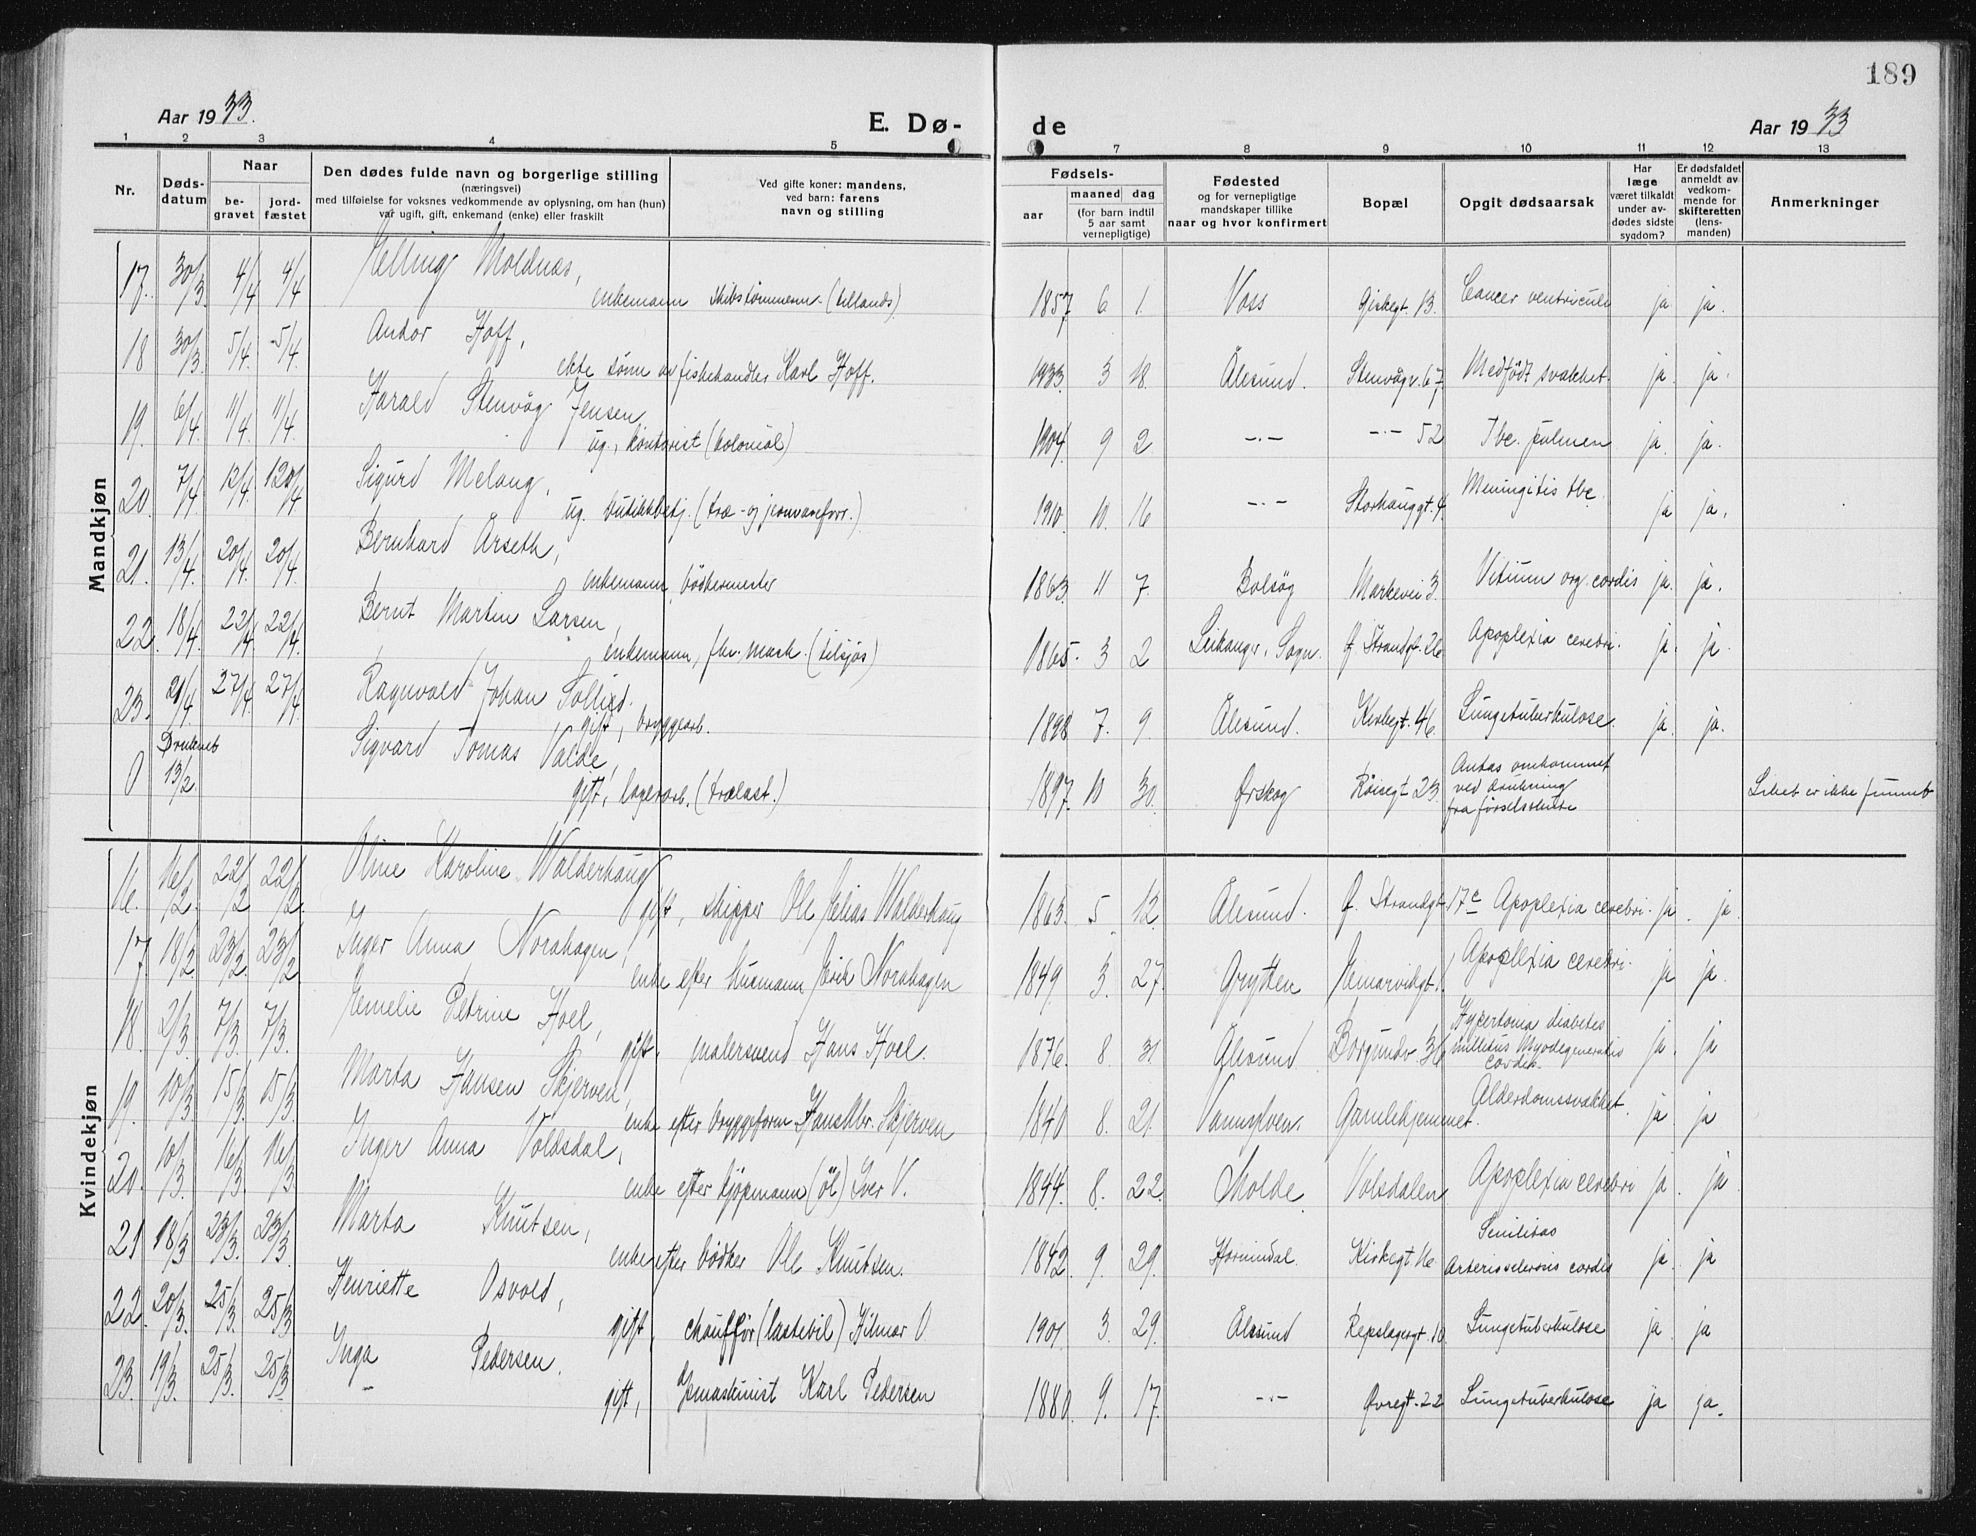 189
Aar 1933.
E. Dø-
de
Aar 1933
1 2 3 4 5 7 8 9 10 11 12 13
Nr.
Døds-
datum
Naar
be-
gravet
jord-
fæstet
Den dødes fulde navn og borgerlige stilling
(næringsvei)
med tilføielse for voksnes vedkommende av oplysning, om han (hun)
var ugift, gift, enkemand (enke) eller fraskilt
Ved gifte koner: mandens,
ved barn: farens
navn og stilling
Fødsels-
aar
maaned
dag
(for barn indtil
5 aar samt
vernepligtige)
Fødested
og for vernepligtige
mandskaper tillike
naar og hvor konfirmert
Bopæl
Opgit dødsaarsak
Har
læge
været tilkaldt
under av-
dødes sidste
sygdom?
Er dødsfaldet
anmeldt av
vedkom-
mende for
skifteretten
(lens-
manden)
Anmerkninger
Mandkjøn
17. 30/3 4/4 4/4 Helling Moldnæs,
enkemann skibstømmerm. (tillands) 1857 6 1. Voss Giskegt. 13. Cancer ventriculi ja ja.
18 30/3 5/4 5/4 Andor Hoff,
ekte sønn av fiskehandler Karl Hoff. 1933. 3 18. Ålesund. Stenvågv. 67 Medfødt svakhet. ja. ja.
19. 6/4 11/4 11/4 Harald Stenvåg Jensen
ug., kontorist (kolonial) 1904 9 2 -"- -"- 52 Tbc. pulmon ja ja.
20. 7/4 12/4 12/4 Sigurd Melang,
ug. butikkbetj. (træ- og jernvareforr.) 1910. 10. 16 -"- Storhauggt. 4. Meningitis tbc. ja ja.
21. 13/4 20/4 20/4 Bernhard Årseth,
enkemann, bødkermester 1863. 11 7. Bolsøy Markevei 3. Vitium org. cordis ja. ja.
22. 18/4 22/4 22/4 Bernt Martin Larsen,
enkemann, fhv. mask. (tilsjøs) 1865. 3 2 Leikanger, Sogn. Ø. Strandgt. 26 Apoplexia cerebri. ja. ja.
23. 21/4 27/4 27/4 Ragnvald Johan
gift, bryggearb. 1898 7. 9. Ålesund. Kirkegt. 46. Lungetuberkulose. ja. ja.
0 Druknet
13/2 Sigvard Tomas Valde,
gift, lagerarb. (trælast.) 1897. 10 30. Ørskog Røisegt 23. Antas omkommet
ved drukning
fra Liket er ikke funnet
Kvindekjøn
16. 16/2 22/2 22/2 Oline Karoline Walderhaug
gift, skipper Ole Elias Walderhaug 1863. 5. 12. Ålesund. Ø. Strandgt 17c Apoplexia cerebri. ja. ja.
17 18/2 23/2 23/2 Inger Anna Norahagen,
enke efter husmann Norahagen 1849 3. 27. Grytten Apoplexia cerebri. ja ja.
18. 2/3 7/3 7/3 Emelie Petrine Hoel,
gift, malersvend Hans Hoel. 1876. 8. 31 Ålesund Borgundv. 36 Hypertonia diabetes
mellitus Myodegeneratio
cordis. ja. ja
19. 10/3 15/3 15/3 Marta Hansen Skjerven,
enke efter bryggeform. Hans Abr. Skjerven 1840 8. 21. Vannylven. Gamlehjemmet. Alderdomssvakhet. ja. ja
20. 10/3 16/3 16/3 Inger Anna Voldsdal,
enke efter kjøpmann (øl) Iver V. 1844. 8. 22. Molde. Volsdalen Apoplexia cerebri ja. ja
21 18/3 23/3. 23/3. Marta Knutsen,
enke efter bødker Ole Knutsen. 1842. 9. 29. Hornindal. Kirkegt 16 Senilitas
Arteriosclerosis cordis ja. ja
22. 20/3. 25/3. 25/3 Henriette Osvold,
gift, chauffør (lastebil) Hilmar O. 1901. 3. 29. Ålesund Repslagergt. 10 Lungetuberkulose ja. ja
23. 19/3. 25/3. 25/3 Inga Pedersen.
gift, maskinist Karl Pedersen 1880. 9. 17. -"- Øvregt. 22 Lungetuberkulose ja ja.